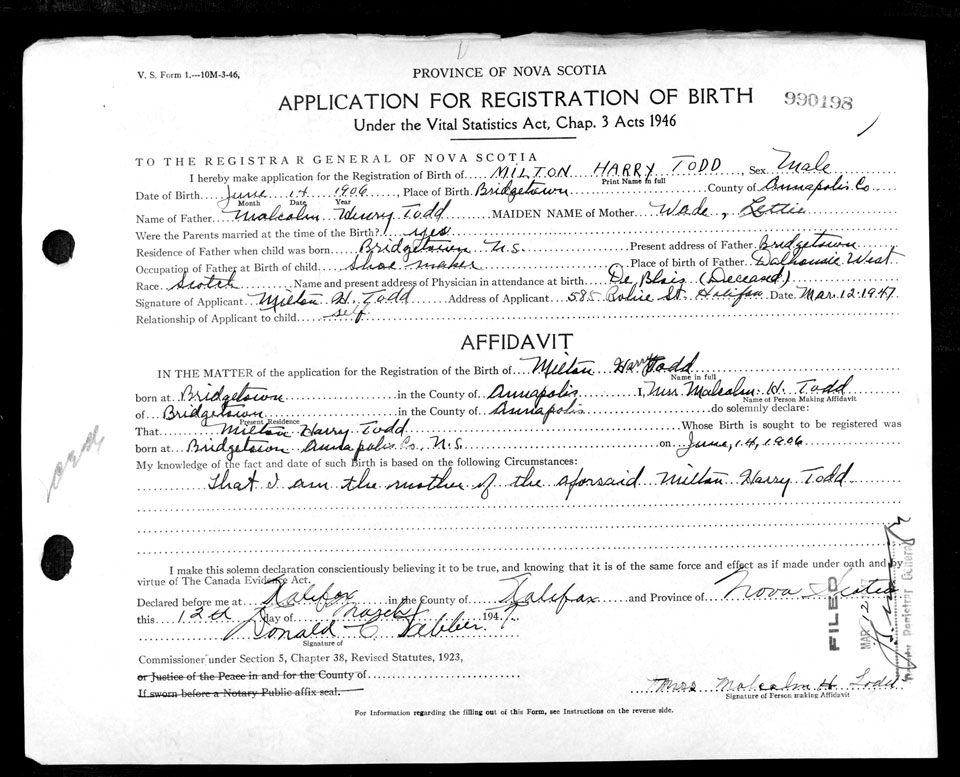 V. S. Form 1.---10M-3-46,
PROVINCE OF NOVA SCOTIA
APPLICATION FOR REGISTRATION OF BIRTH
990198
Under the Vital Statistics Act, Chap. 3 Acts 1946
TO THE REGISTRAR GENERAL OF NOVA SCOTIA
I hereby make application for the Registration of Birth of MILTON HARRY TODD, Sex Male
Print Name in full
Date of Birth June 14 1906, Place of Birth Bridgetown County of Annapolis Co
Month Date Year
Name of Father Malcolm Henry Todd MAIDEN NAME of Mother Wade, Lettie
Were the Parents married at the time of the Birth? yes
Residence of Father when child was born Bridgetown N.S. Present address of Father Bridgetown
Occupation of Father at Birth of child Shoe maker Place of birth of Father Dalhousie West
Race Scotch Name and present address of Physician in attendance at birth De Blois (Deceased)
Signature of Applicant Milton H. Todd Address of Applicant 585 Robie St. Halifax Date Mar. 12. 1947
Relationship of Applicant to child self
AFFIDAVIT
IN THE MATTER of the application for the Registration of the Birth of Milton Harry Todd
Name in full
born at Bridgetown in the County of Annapolis I, Mrs Malcolm H. Todd
Name of Person Making Affidavit
of Bridgetown in the County of Annapolis do solemnly declare:
Present Residence
That Milton Harry Todd Whose Birth is sought to be registered was
born at Bridgetown Annapolis Co., N.S. on June, 14, 1906
My knowledge of the fact and date of such Birth is based on the following Circumstances:
That I am the mother of the aforsaid Milton Harry Todd
I make this solemn declaration conscientiously believing it to be true, and knowing that it is of the same force and effect as if made under oath and by
virtue of The Canada Evidence Act.
Declared before me at Halifax in the County of Halifax and Province of Nova Scotia
this 12th day of March 1947
Donald C. Webber
Signature of
Commissioner under Section 5, Chapter 38, Revised Statutes, 1923,
or Justice of the Peace in and for the County of
If sworn before a Notary Public affix seal.
Mrs Malcolm H Todd
Signature of Person making Affidavit
For Information regarding the filling out of this Form, see Instructions on the reverse side.
FILED
MAR 12 1947
Registrar General